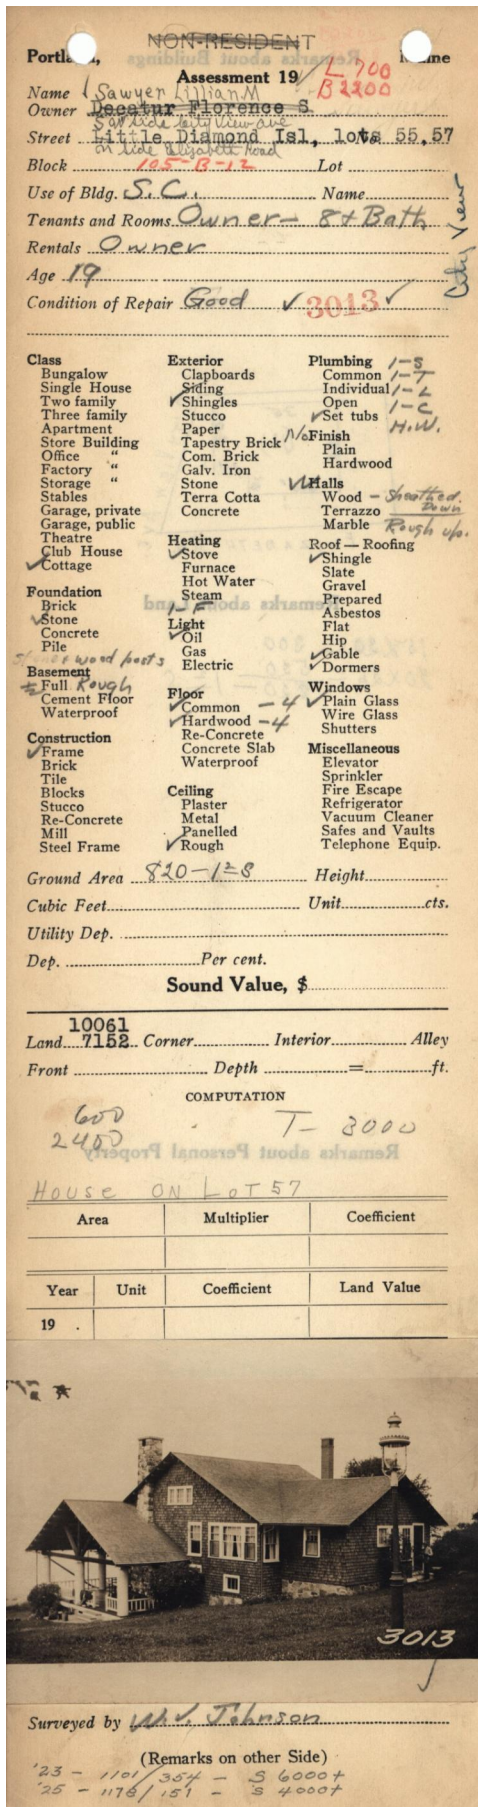 NON-RESIDENT
Portland, Maine
Assessment 19 L 700
B 2200
Name Sawyer Lillian M
Owner Decatur Florence S.
S. side City View Ave
Street Little Diamond Isl, lots 55,57
on side Elizabeth Road
Block 105-B-12 Lot
Use of Bldg. S.C. Name
City View
Tenants and Rooms Owner - 8 + Bath
Rentals Owner
Age 19
Condition of Repair Good ✓ 3013 ✓
Class
Bungalow
Single House
Two family
Three family
Apartment
Store Building
Office "
Factory "
Storage "
Stables
Garage, private
Garage, public
Theatre
Club House
✓ Cottage
Foundation
Brick
✓ Stone
Concrete
Pile
Stone + wood posts
Basement
½ Full Rough
Cement Floor
Waterproof
Construction
✓ Frame
Brick
Tile
Blocks
Stucco
Re-Concrete
Mill
Steel Frame
Exterior
Clapboards
Siding
✓ Shingles
Stucco
Paper
Tapestry Brick
Com. Brick
Galv. Iron
Stone
Terra Cotta
Concrete
Heating
✓ Stove
Furnace
Hot Water
Steam
1-F
Light
✓ Oil
Gas
Electric
Floor
✓ Common - 4
✓ Hardwood - 4
Re-Concrete
Concrete Slab
Waterproof
Ceiling
Plaster
Metal
Panelled
✓ Rough
Plumbing 1-S
Common 1-T
Individual 1-L
Open 1-C
✓ Set tubs H.W.
No Finish
Plain
Hardwood
✓ Halls
Wood - Sheathed Down
Terrazzo
Marble Rough up.
Roof — Roofing
✓ Shingle
Slate
Gravel
Prepared
Asbestos
Flat
Hip
✓ Gable
✓ Dormers
Windows
✓ Plain Glass
Wire Glass
Shutters
Miscellaneous
Elevator
Sprinkler
Fire Escape
Refrigerator
Vacuum Cleaner
Safes and Vaults
Telephone Equip.
Ground Area 820 - 1½ S Height
Cubic Feet Unit cts.
Utility Dep.
Dep. Per cent.
Sound Value, $
10061
Land 7152 Corner Interior Alley
Front Depth = ft.
COMPUTATION
600
2400 T - 3000
Remarks about Personal Property
HOUSE ON LOT 57
Area Multiplier Coefficient
Year Unit Coefficient Land Value
19 .
3013
Surveyed by W. J. Johnson
(Remarks on other Side)
'23 - 1101/354 - S 6000+
'25 - 1178/151 - S 4000+